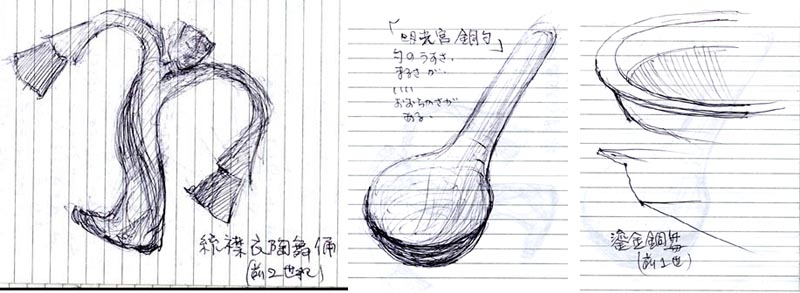 繞襟衣陶舞俑
(前2世紀)
「明光宮 銅勺」
勺のうすさ、
まるさが、
いい
おおらかさが
ある。
鎏金銅
(前1世)